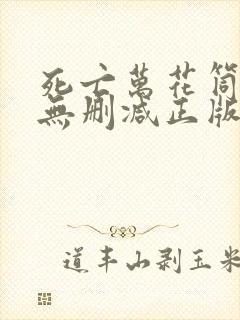 死亡萬花筒
無刪減正版
道丰山剥玉米